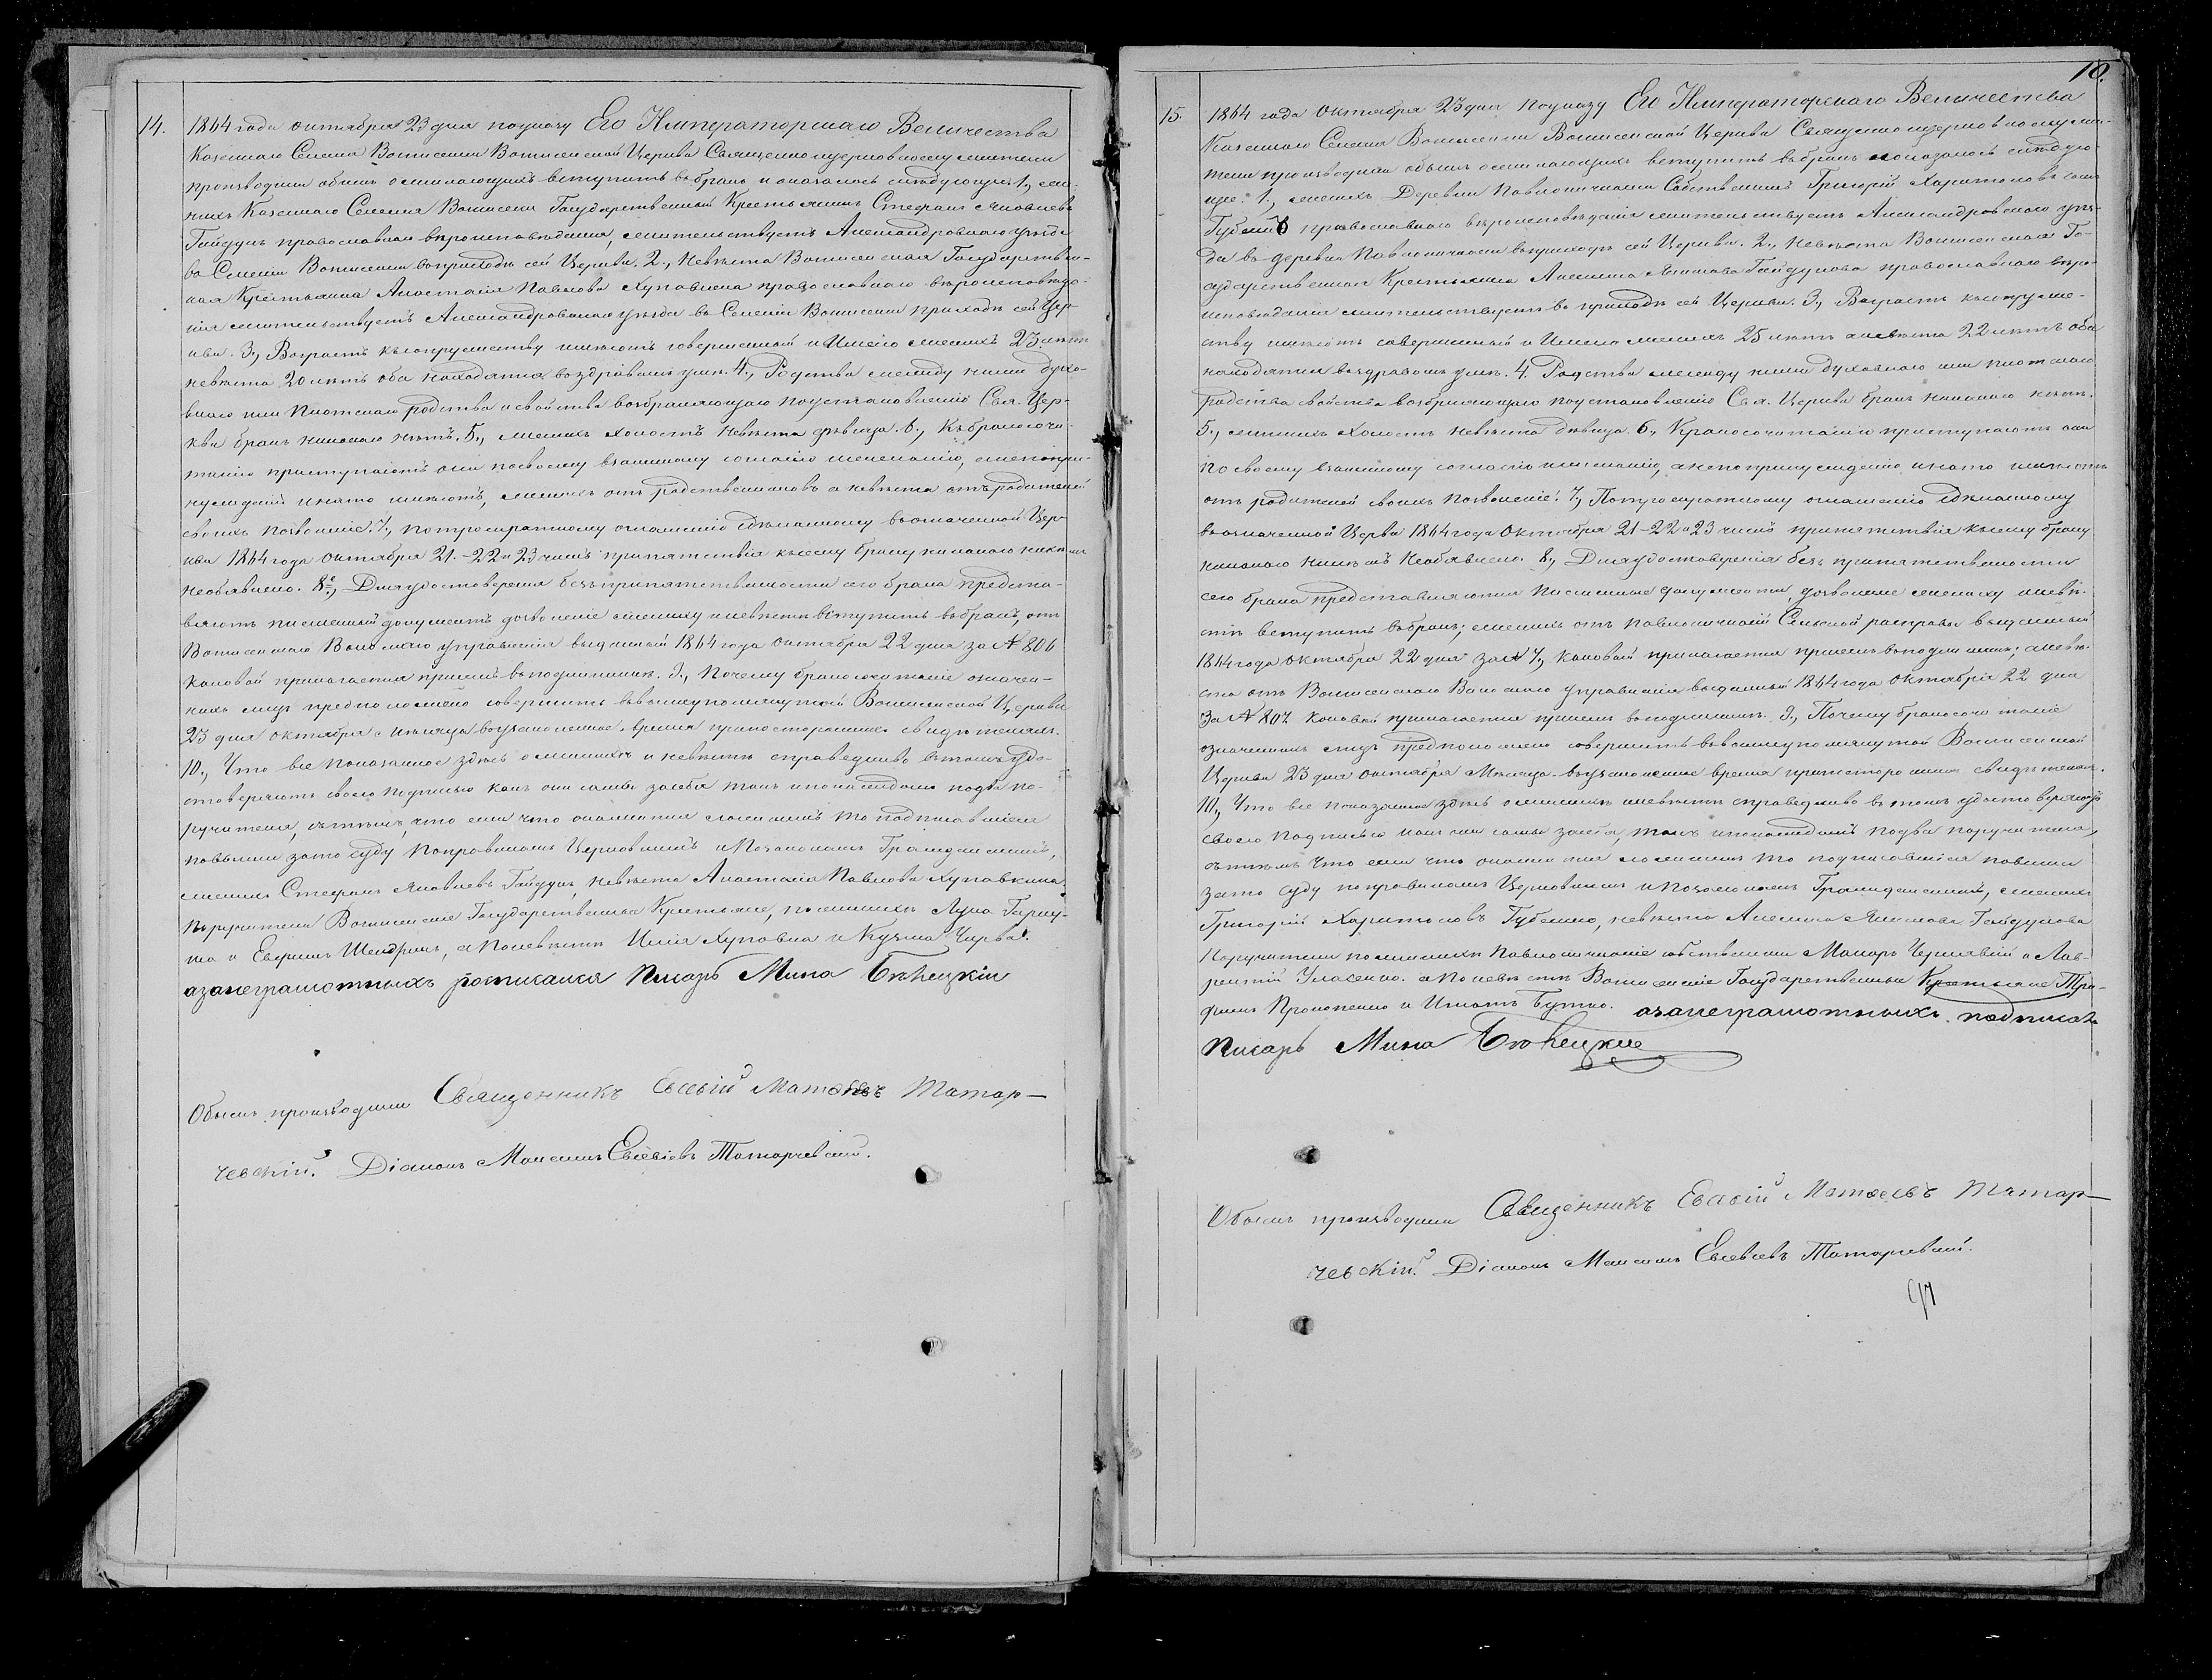 14.
1864 года октября 23 дня по указу Его Императорскаго Величества
Казеннаго Селенія Вошисении Церкви Священноцерковнослужители
производили обыскъ о желающихъ вступить въ бракъ и оказалось слѣдующее: 1., же-
нихъ Казеннаго Селенія Государственный Крестьянинъ Стефанъ Яковлевъ
Гайдукъ православнаго вѣроисповѣданія, жительствуетъ Александровскаго уѣзда
въ Селеніи въ приходѣ сей Церкви. 2., Невѣста Государствен-
ная Крестьянка Анастасія Павлова православнаго вѣроисповѣда-
нія жительствуетъ Александровскаго уѣзда въ Селеніи приходѣ сей Цер-
кви. 3., Возрастъ къ супружеству имѣютъ совершенный и Именно женихъ 23 лѣтъ
невѣста 20 лѣтъ оба находятся въ здравомъ умѣ. 4., Родства между ними духо-
внаго или Плотскаго родства и свойства возбраняющаго по установленію Свя. Цер-
кви бракъ никакого нѣтъ. 5., женихъ холостъ невѣста дѣвица. 6., Къ бракосоче-
танію приступаютъ они по своему взаимному согласію и желанію, а не по при-
нужденію и на то имѣютъ, женихъ отъ родственниковъ а невѣста отъ родителей
своихъ позволеніе. 7., По троекратному оглашенію сдѣланному въ означенной Цер-
кви 1864 года октября 21.-22 и 23 числъ препятствія къ сему браку никакого никѣмъ
необъявлено. 8е., Для удостовѣренія безпрепятственности сего брака предста-
вляютъ письменный документъ дозволеніе жениху и невѣстѣ вступить въ бракъ, отъ
Волостнаго управленія выданный 1864 года октября 22 дня за № 806
каковой прилагается при семъ въ подлинникѣ. 9., Почему бракосочетаніе означен-
ныхъ лицъ предположено совершить въ вышеупомянутой Церкви
23 дня октября мѣсяца въ узаконенное время при постороннихъ свидѣтеляхъ.
10., Что все показанное здѣсь о женихѣ и невѣстѣ справедливо въ томъ удо-
стовѣряютъ своею подписью какъ они сами за себя такъ и по каждомъ по два по-
ручителя, съ тѣмъ, что если что окажется ложнымъ то подписавшіеся
повинны за то суду по правиламъ Церковнымъ и По законамъ Гражданскимъ,
женихъ Стефанъ Яковлевъ Гайдукъ, невѣста Анастасія Павлова
Поручители Государственные Крестьяне, по женихѣ Лука
и Евфимъ а По невѣстѣ Илія и Кузьма Чирва.
а за неграмотныхъ росписался Писарь Мина Бѣлецкій
Обыскъ производили Священникъ Евсевій Матвѣевъ Татар-
чевскій. Діаконъ Максимъ Евсевіевъ Татарчевскій.
10.
15.
1864 года октября 23 дня по указу Его Императорскаго Величества
Казеннаго Селенія Церкви Священноцерковнослужи-
тели производили обыскъ о желающихъ вступить въ бракъ и оказалось слѣдую-
щее: 1., женихъ Деревни Собственникъ Григорій Харитоновъ сынъ
Губенко православнаго вѣроисповѣданія жительствуетъ Александровскаго уѣз-
да въ деревнѣ въ приходѣ сей Церкви. 2., Невѣста Го-
сударственная Крестьянка Акилина Якимова Гайдукова православнаго вѣро-
исповѣданія жительствуетъ въ приходѣ сей Церкви. 3., Возрастъ къ супруже-
ству имѣютъ совершенный и Именно женихъ 25 лѣтъ а невѣста 22 лѣтъ оба
находятся въ здравомъ умѣ. 4. Родства между ними духовнаго или плотскаго
родства свойства возбраняющаго по установленію Свя. Церкви бракъ никакого нѣтъ.
5., женихъ холостъ невѣста дѣвица. 6., Къ бракосочетанію приступаютъ они
по своему взаимному согласію и желанію, а не по принужденію и на то имѣютъ
отъ родителей своихъ позволеніе. 7., По троекратному оглашенію сдѣланному
въ означенной Церкви 1864 года октября 21-22 и 23 числъ препятствія къ сему браку
никакого никѣмъ необъявлено. 8., Для удостовѣренія безпрепятственности
сего брака представляются письменные документы, дозволеніе жениху и невѣ-
стѣ вступить въ бракъ; женихъ отъ Сельской расправы выданный
1864 года октября 22 дня за № 7., каковой прилагается при семъ въ подлинникѣ; а невѣ-
ста отъ Волостнаго управленія выданный 1864 года октября 22 дня
за № 807 каковой прилагается при семъ въ подлинникѣ. 9., Почему бракосочетаніе
означенныхъ лицъ предположено совершить въ вышеупомянутой
Церкви 23 дня октября Мѣсяца въ узаконенное время при постороннихъ свидѣтеляхъ.
10., Что все показанное здѣсь о женихѣ и невѣстѣ справедливо въ томъ удостовѣряютъ
своею подписью какъ они сами за себя, такъ и по каждомъ по два поручителя,
съ тѣмъ что если что окажется ложнымъ то подписавшіеся повинны
за то суду по правиламъ Церковнымъ и По законамъ Гражданскимъ, женихъ
Григорій Харитоновъ Губенко, невѣста Акилина Якимова Гайдукова
Поручители по женихѣ собственники Макаръ Чернявій и Лав-
рентій Власенко. а По невѣстѣ Государственные Крестьяне Тро-
фимъ Прокопенко и Игнатъ Бутко. а за неграмотныхъ подписалъ
Писарь Мина Бѣлецкій
Обыскъ производили Священникъ Евсевій Матвѣевъ Татар-
чевскій. Діаконъ Максимъ Евсевіевъ Татарчевскій.